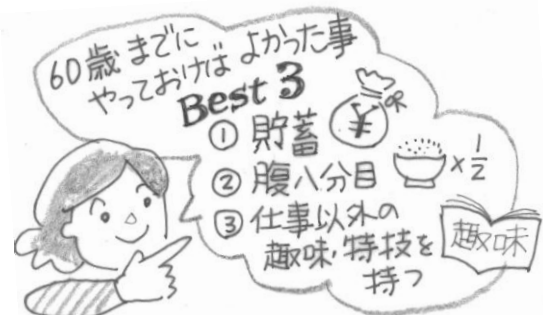 60歳までに
やっておけば よかった事
Best 3
① 貯蓄
¥
② 腹八分目
×1/2
③ 仕事以外の
趣味・特技を
持つ
趣味